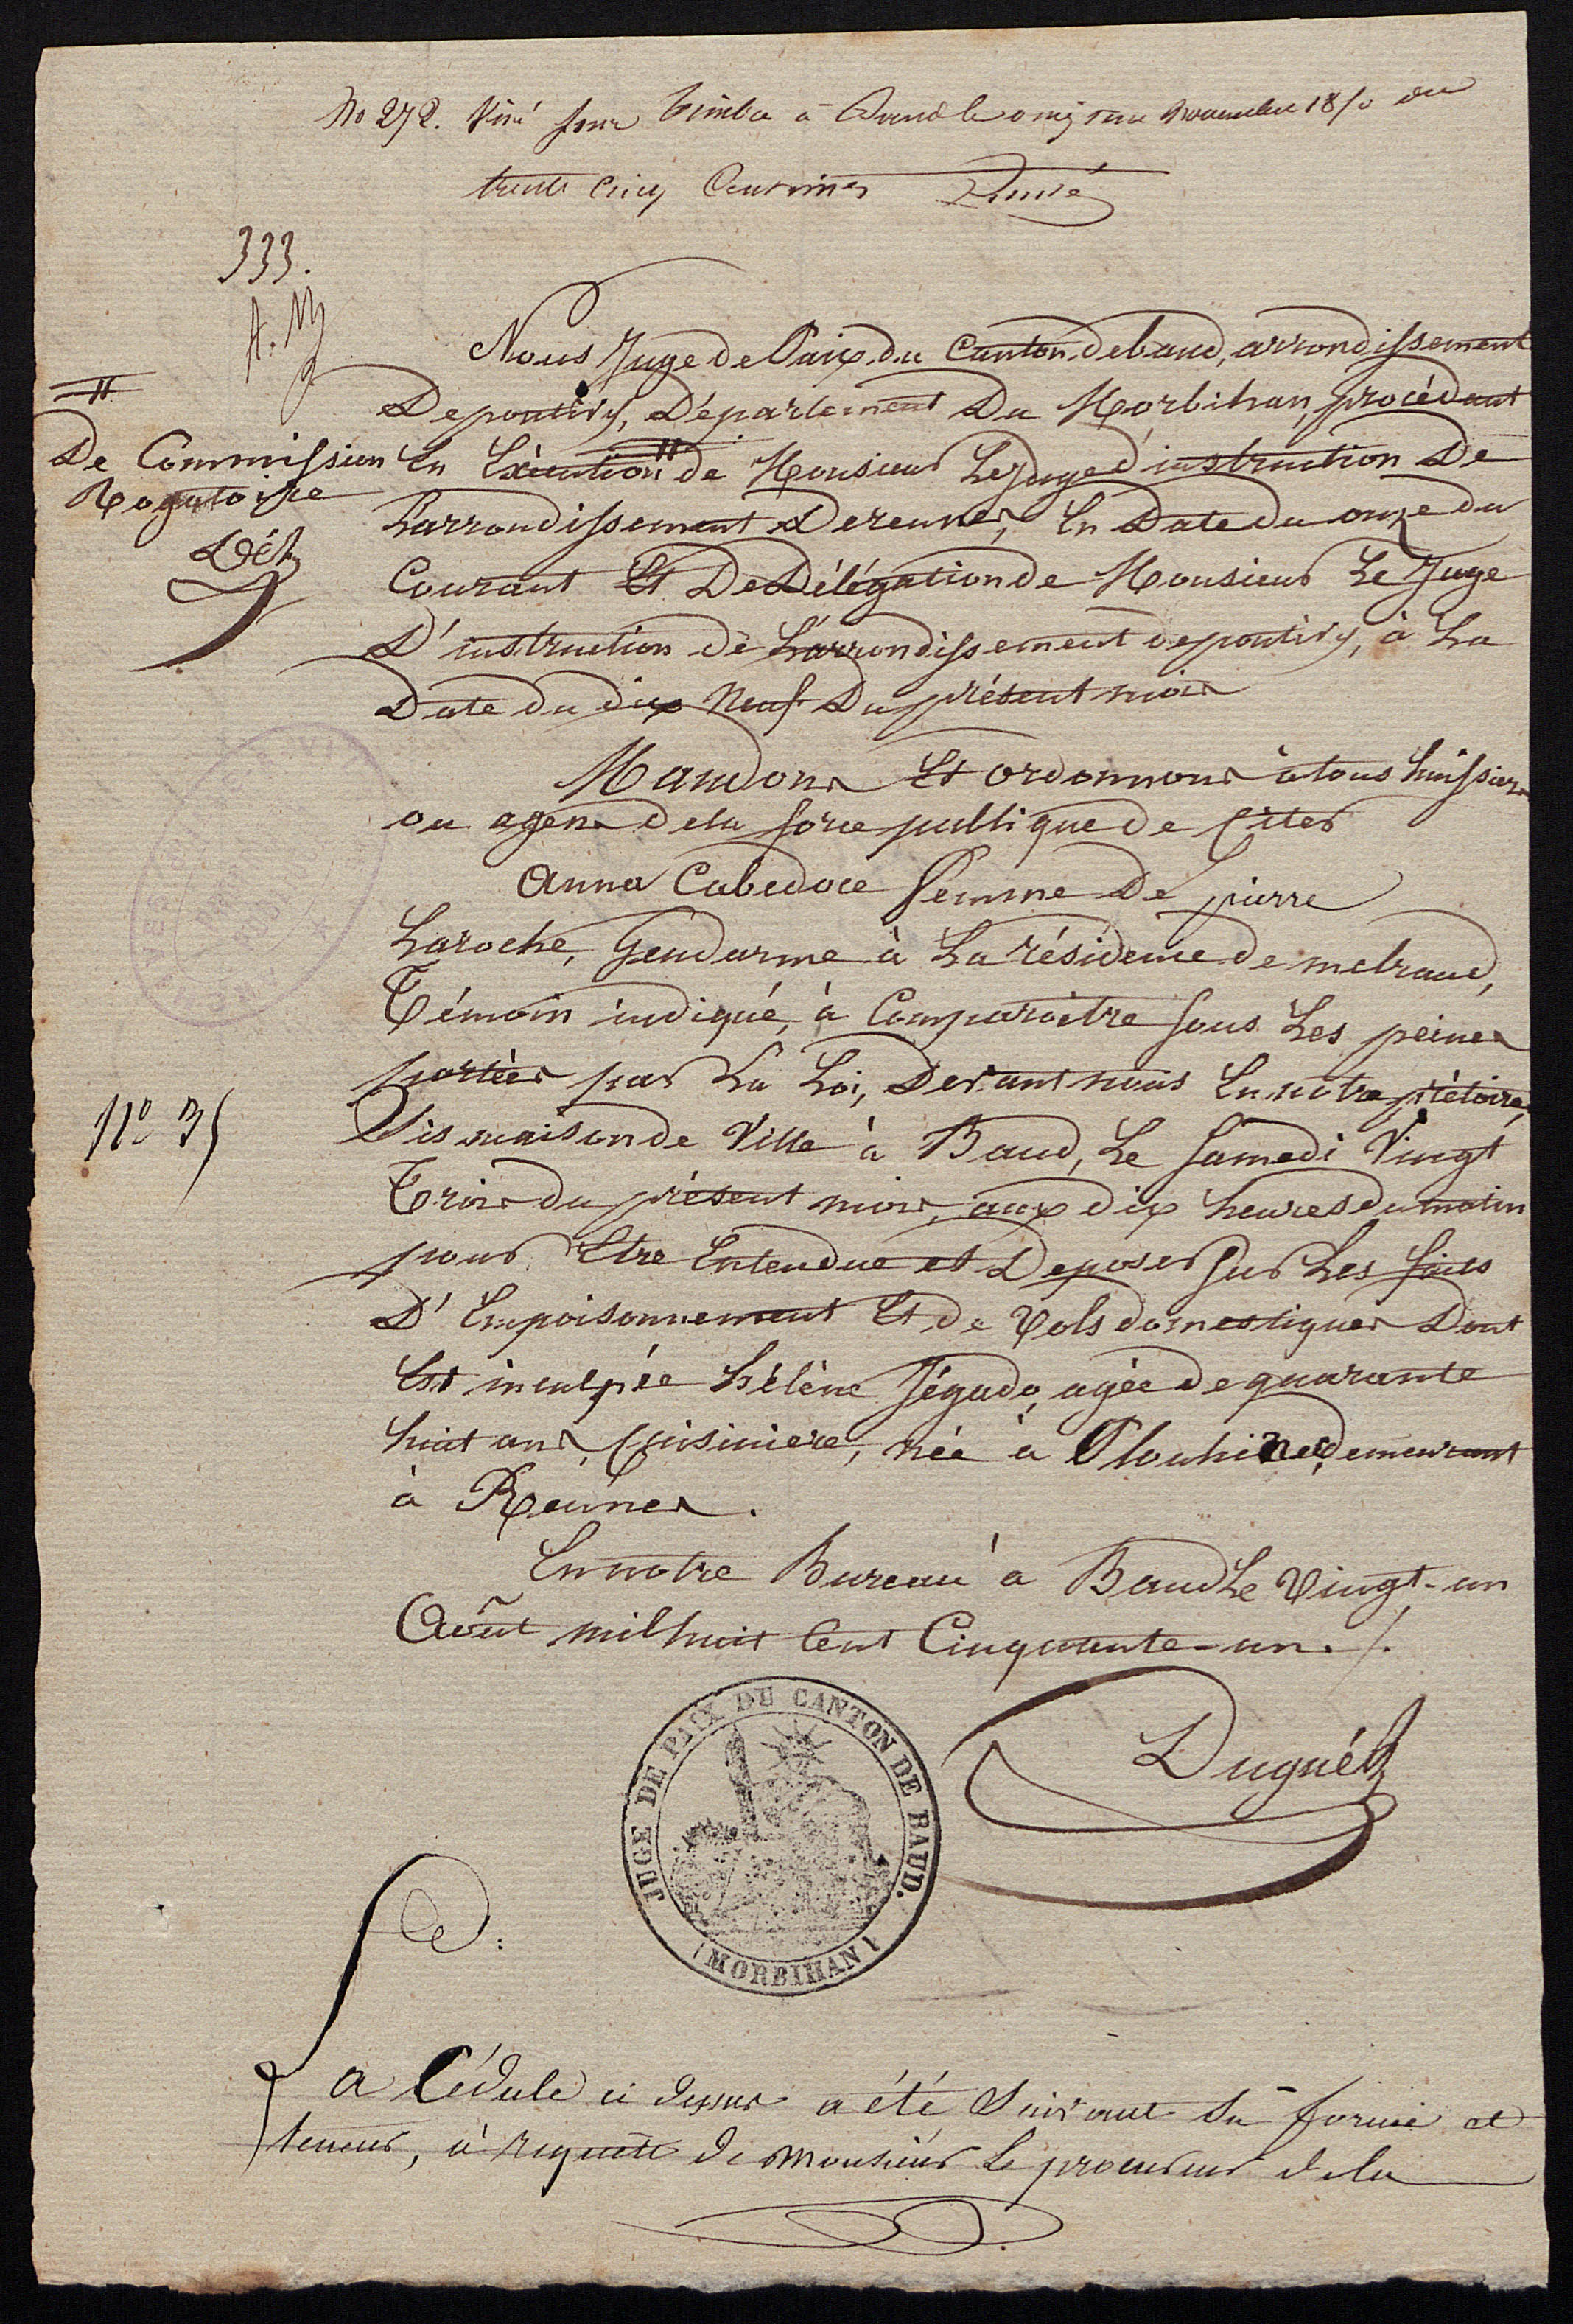 No 272. Visé pour timbre à Baud le novembre 1850 du
trente cinq Centimes
333.
Nous Juge de Paix du Canton de baud, arrondissement
De pontivy, Département Du Morbihan, procédant
En Exécution # de Monsieur Le Juge d'instruction De
#
De Commission
Rogatoire
Dét
L'arrondissement De rennes, En Date du onze du
Courant Et De Délégation de Monsieur Le Juge
D'instruction de L'arrondissement de pontivy, à La
Date du dix Neuf Du présent mois
Mandons Et ordonnons à tous huissiers
ou agens de la force publique de Citer
Anna Cabedoce femme De pierre
Laroche, Gendarme à La résidence de melrand,
Témoin indiqué, à Comparoitre sous Les peines
portées par La Loi, Devant nous En notre prétoire,
No 35
Sis maison de Ville à Baud, Le Samedi Vingt
Trois du présent mois, aux dix heures du matin
pour Etre Entendue et Deposer sur Les faits
D'Empoisonnement Et de Vols domestiques Dont
Est inculpée hélène Jégado, agée de quarante
huit ans, Cuisiniere, née à Plouhinec, demeurant
à Rennes.
En notre Bureau à Baud Le Vingt-un
Août mil huit Cent Cinquante-un./.
Duguéy
JUGE DE PAIX DU CANTON DE BAUD.
(MORBIHAN)
La Cédule ci dessus a été Suivant Sa forme et
teneur, à requête de Monsieur Le procureur de la